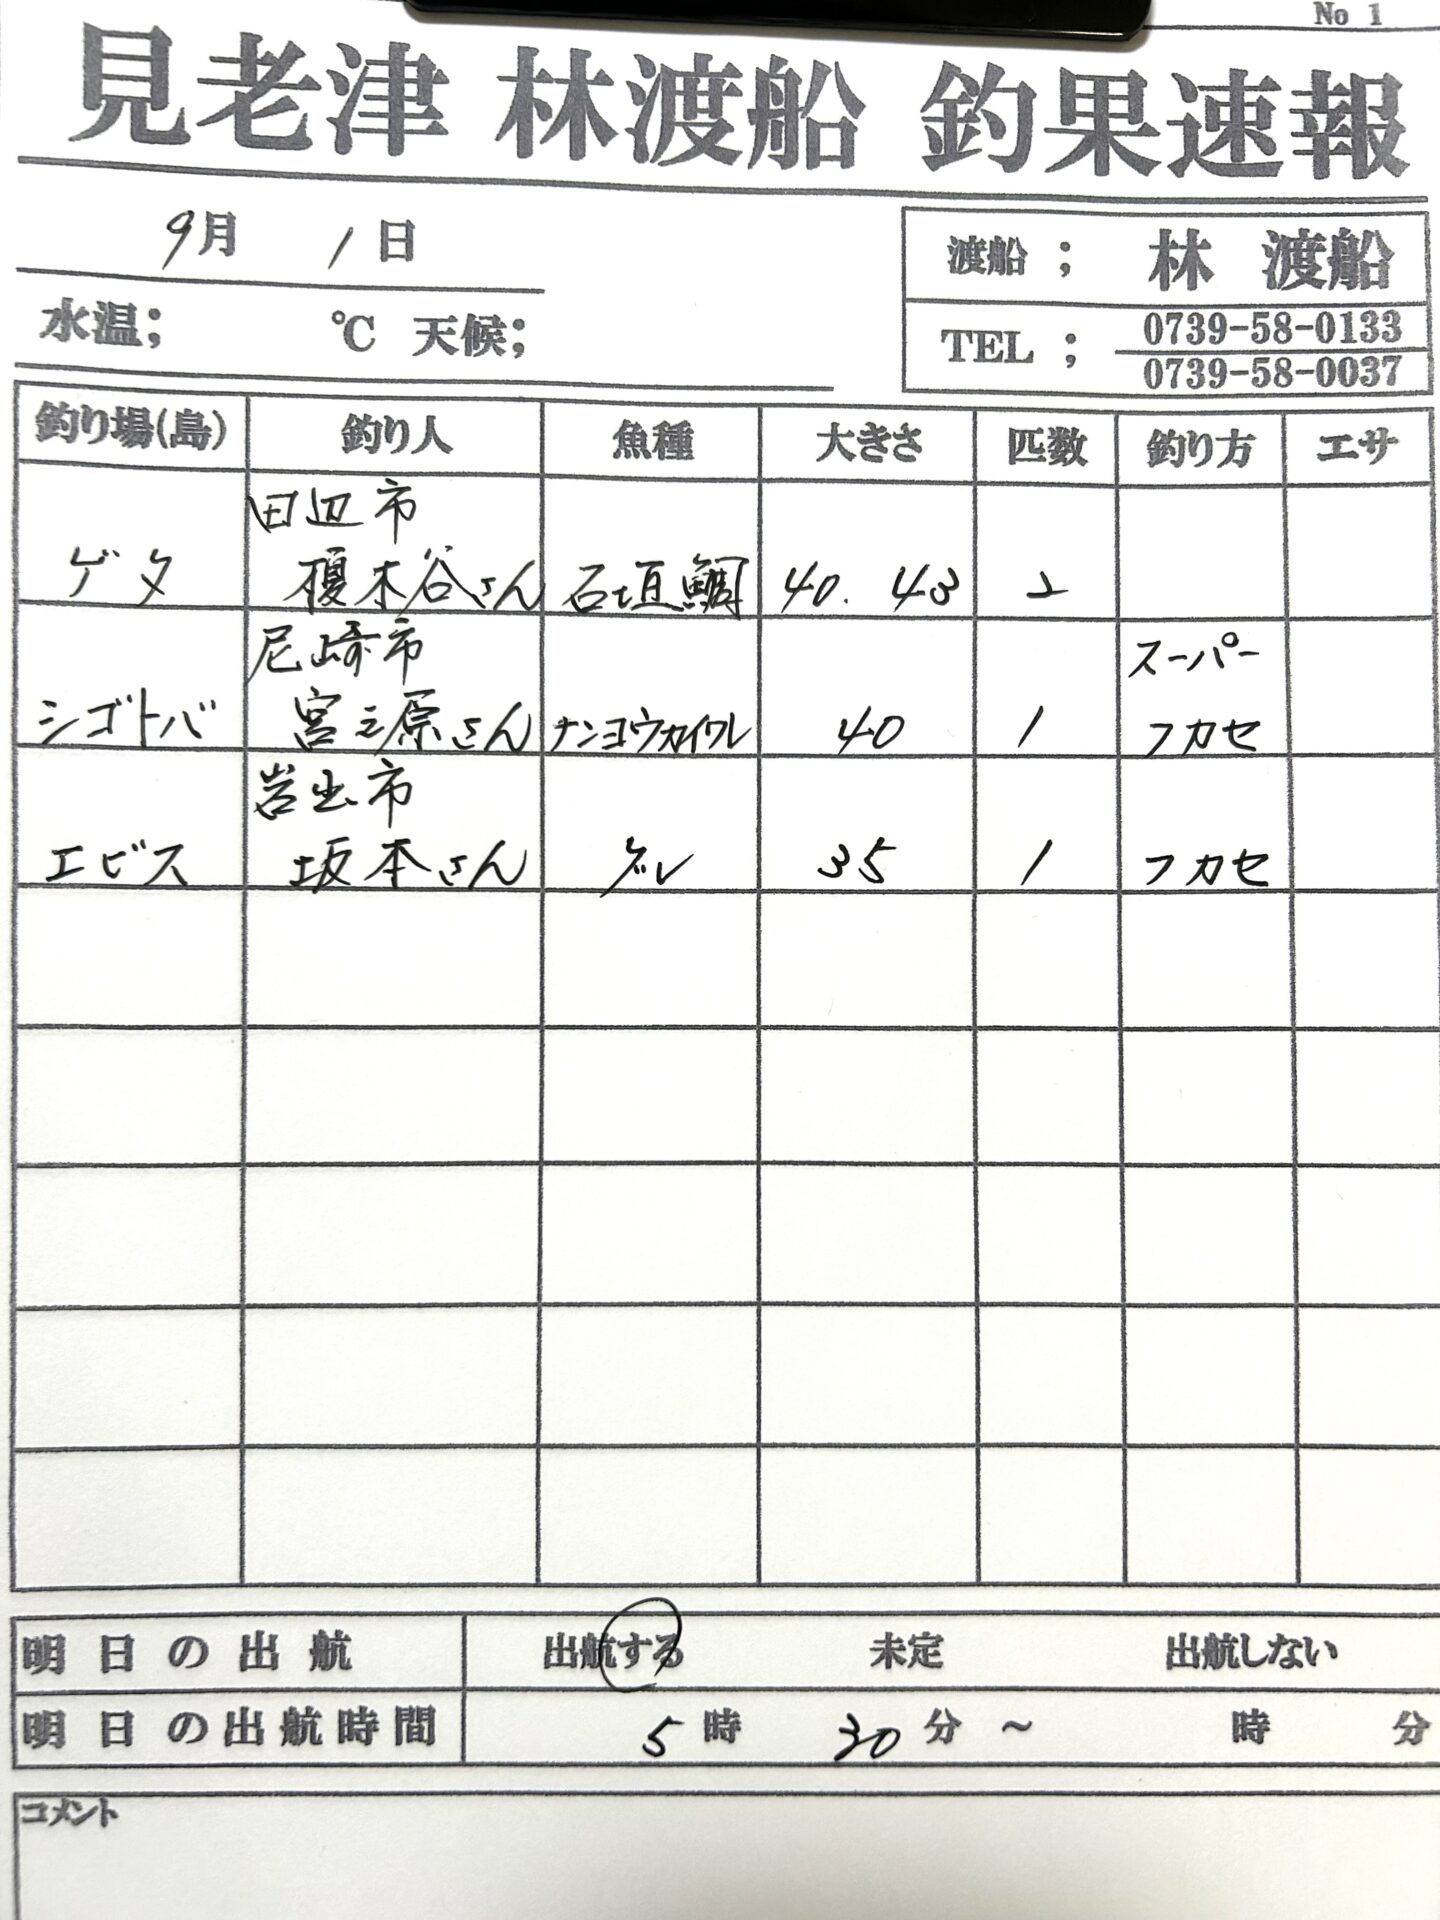 No 1
見老津 林渡船 釣果速報
9月 1日
渡船 ; 林 渡船
水温; ℃ 天候;
TEL ; 0739-58-0133
0739-58-0037
釣り場(島) 釣り人 魚種 大きさ 匹数 釣り方 エサ
田辺市
ゲタ 榎木谷さん 石垣鯛 40. 43 2
尼崎市 スーパー
シゴトバ 宮之原さん ナンヨウカイワレ 40 1 フカセ
岩出市
エビス 坂本さん グレ 35 1 フカセ
明日の出航 出航する 未定 出航しない
明日の出航時間 5時 30分 ～ 時 分
コメント